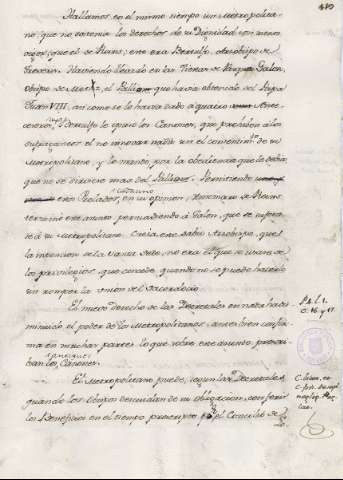 Hallamos en el mismo tiempo un Metropolita-
no, que no sostenia los derechos de su Dignidad con menos
vigor, que el de Reims; este era Bertulfo, Arzobispo de
Treveris. Haviendo llevado en las Galon,
obispo de Metz, el Pallium que havia obtenido del Papa
Juan VIII, asi como se lo havia dado a quatro Ante-
cesores, Bertulfo le opuso los Canones, que prohiben à los
sufraganeos el no innovar nada sin el consentimto. de su
Metropolitano, y le mandó, por la obediencia que le debia
que no se sirviese mas del Pallium. Permitiendo
estos Prelados, en su opinion, Hincmaro de Reims
terminó este asunto persuadiendo à Galon, que se
se à su Metropolitano. Creía este sabio Arzobispo, que
la intencion de la Santa Sede, no era el que se usara de
los privilegios, que concede, quando no se puede hacerlo
sin romper la union del Sacerdocio.
El nuevo derecho de las Decretales en nada ha dis-
minuido el poder de los Metropolitanos, antes bien confir-
ma en muchas partes lo que sobre este asunto prescri-
ban los antiguos Canones.
El Metropolitano puede, segun las Decretales,
quando los obispos descuidan de su obligacion, conferir
los Beneficios en el tiempo prescripto pr. el Concilio de
P. 2. l. 1.
c. 16. y 17